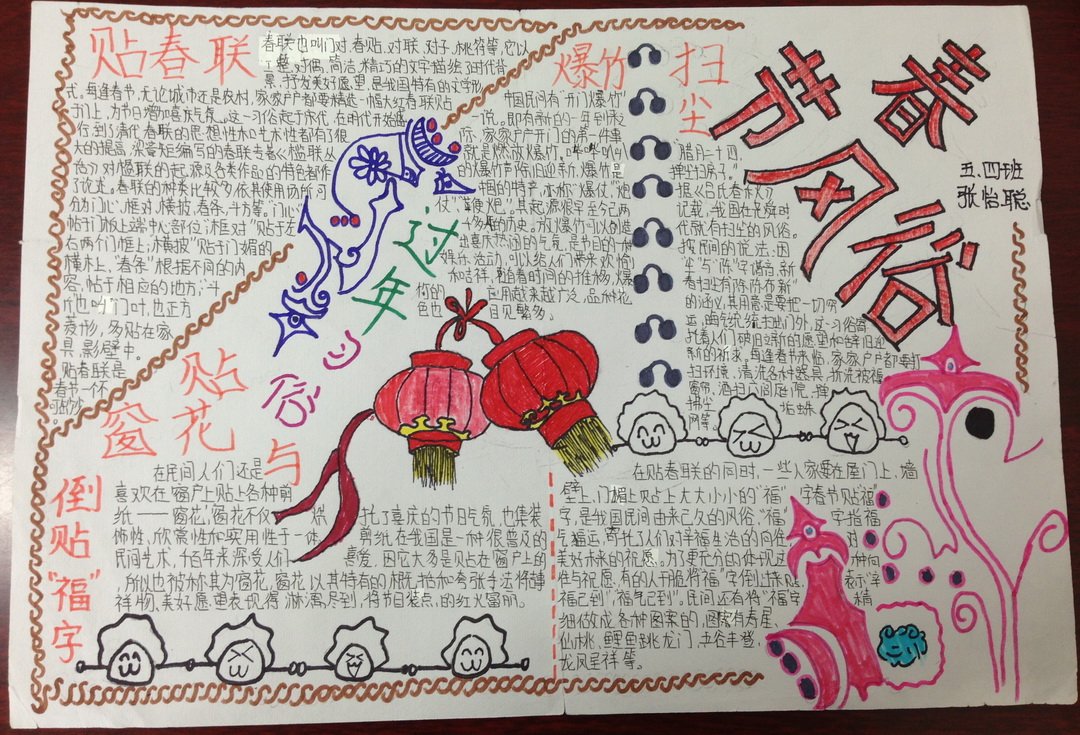 春节风俗
五.四班
张怡聪
贴春联
春联也叫门对、春贴、对联、对子、桃符等,它以
工整、对偶、简洁、精巧的文字描绘了时代背
景,抒发美好愿望,是我国特有的文学形
式。每逢春节,无论城市还是农村,家家户户都要精选一幅大红春联贴
于门上,为节日增加喜庆气氛。这一习俗起于宋代,在明代开始盛
行,到了清代,春联的思想性和艺术性都有了很
大的提高,梁章矩编写的春联专著《槛联丛
话》对楹联的起源及各类作品的特色都作
了论述。春联的种类比较多,依其使用场所,可
分为门心、框对、横披、春条、斗方等。“门心”
帖于门板上端中心部位;“框对”贴于左
右两个门框上;“横披”贴于门媚的
横木上,“春条”根据不同的内
容,帖于相应的地方;“斗
斤”也叫“门叶,也正方
菱形,多贴在家
具、影壁中。
贴春联是
春节一个不
可缺少
爆竹
中国民间有“开门爆竹”
一说。即有新的一年到来之
际,家家户户开门的第一件事
就是燃放爆竹,
的爆竹声除旧迎新,爆竹是
中国的特产,亦称“爆仗”“炮
仗”“鞭炮”。其起源很早,至今已两
千多年的历史。放爆竹可以创造
出喜庆热闹的气氛,是节日的一种
娱乐活动,可以给人们带来欢愉
和吉祥,随着时间的推移,爆
竹的应用越来越广泛,品种花
色也日见繁多。
扫尘
“腊月二十四,
掸尘扫房子”。
据《吕氏春秋》
记载,我国在尧舜时
代就有扫尘的风俗。
按民间的说法:因
“尘”与“陈”字谐音,新
春扫尘有“除陈布新”
的涵义,其用意是要把一切穷
运、晦气统统扫出门外,这一习俗寄
托着人们破旧立新的愿望和辞旧迎
新的祈求。每逢春节来临,家家户户都要打
扫环境,清洗各种器具,拆洗被褥
窗帘,洒扫六闾庭院,掸
拂尘垢蛛
网等。
过年
与
贴窗花
在民间人们还
喜欢在窗户上贴上各种剪
纸——窗花,窗花不仅烘托了喜庆的节日气氛,也集装
饰性、欣赏性和实用性于一体,剪纸在我国是一种很普及的
民间艺术,千百年来深受人们喜爱,因它大多是贴在窗户上的
所以也被称其为窗花。窗花以其特有的概括和夸张手法将吉
祥物、美好愿望表现得淋漓尽到,将节日装点的红火富丽。
倒贴“福”字
在贴春联的同时,一些人家要在屋门上、墙
壁上、门楣上贴上大大小小的“福”字春节贴“福”
字,是我国民间由来已久的风俗,“福”字指福
气福运,寄托了人们对幸福生活的向往,对
美好未来的祝愿。为了更充分的体现这种向
往与祝愿,有的人干脆将“福”字倒过来贴,表示“幸
福已到”“福气已到”。民间还有将“福”字精
细做成各种图案的,图案有寿星、
仙桃、鲤鱼跳龙门、五谷丰登、
龙凤呈祥等。